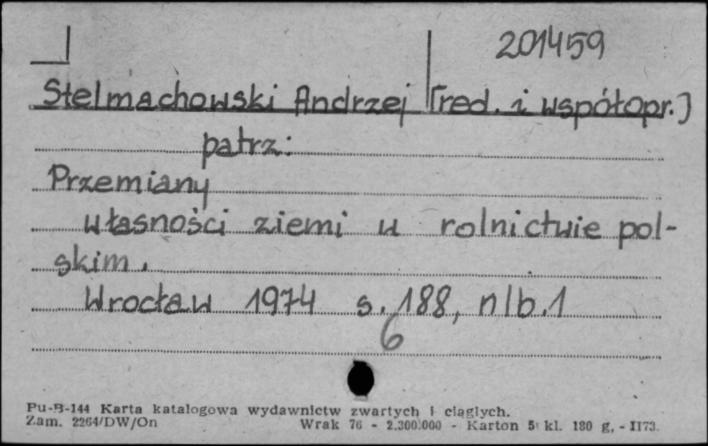 201459
Stelmachowski Andrzej [red. i współopr.]
patrz:
Przemiany
własności ziemi w rolnictwie pol-
skim.
Wrocław 1974 s. 188, nlb. 1
6
Pu-B-144 Karta katalogowa wydawnictw zwartych i ciągłych.
Zam. 2264/DW/On Wrak 76 - 2.300.000 - Karton 5 kl. 180 g, - II73.